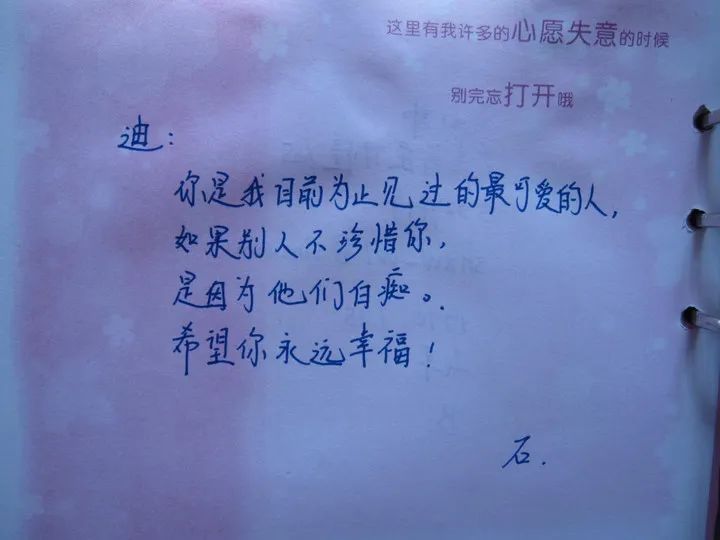 这里有我许多的心愿失意的时候
别完忘打开哦
迪：
你是我目前为止见过的最可爱的人，
如果别人不珍惜你，
是因为他们白痴。
希望你永远幸福！
石.